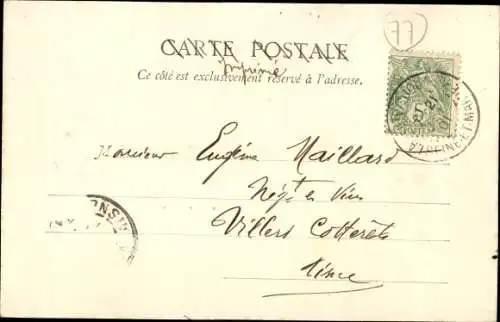 77
CARTE POSTALE
Imprimé
Ce côté est exclusivement réservé à l'adresse.
Monsieur Eugène Maillard
Négt en Vins
Villers Cotterêts
Aisne
SEINE-ET-MAR